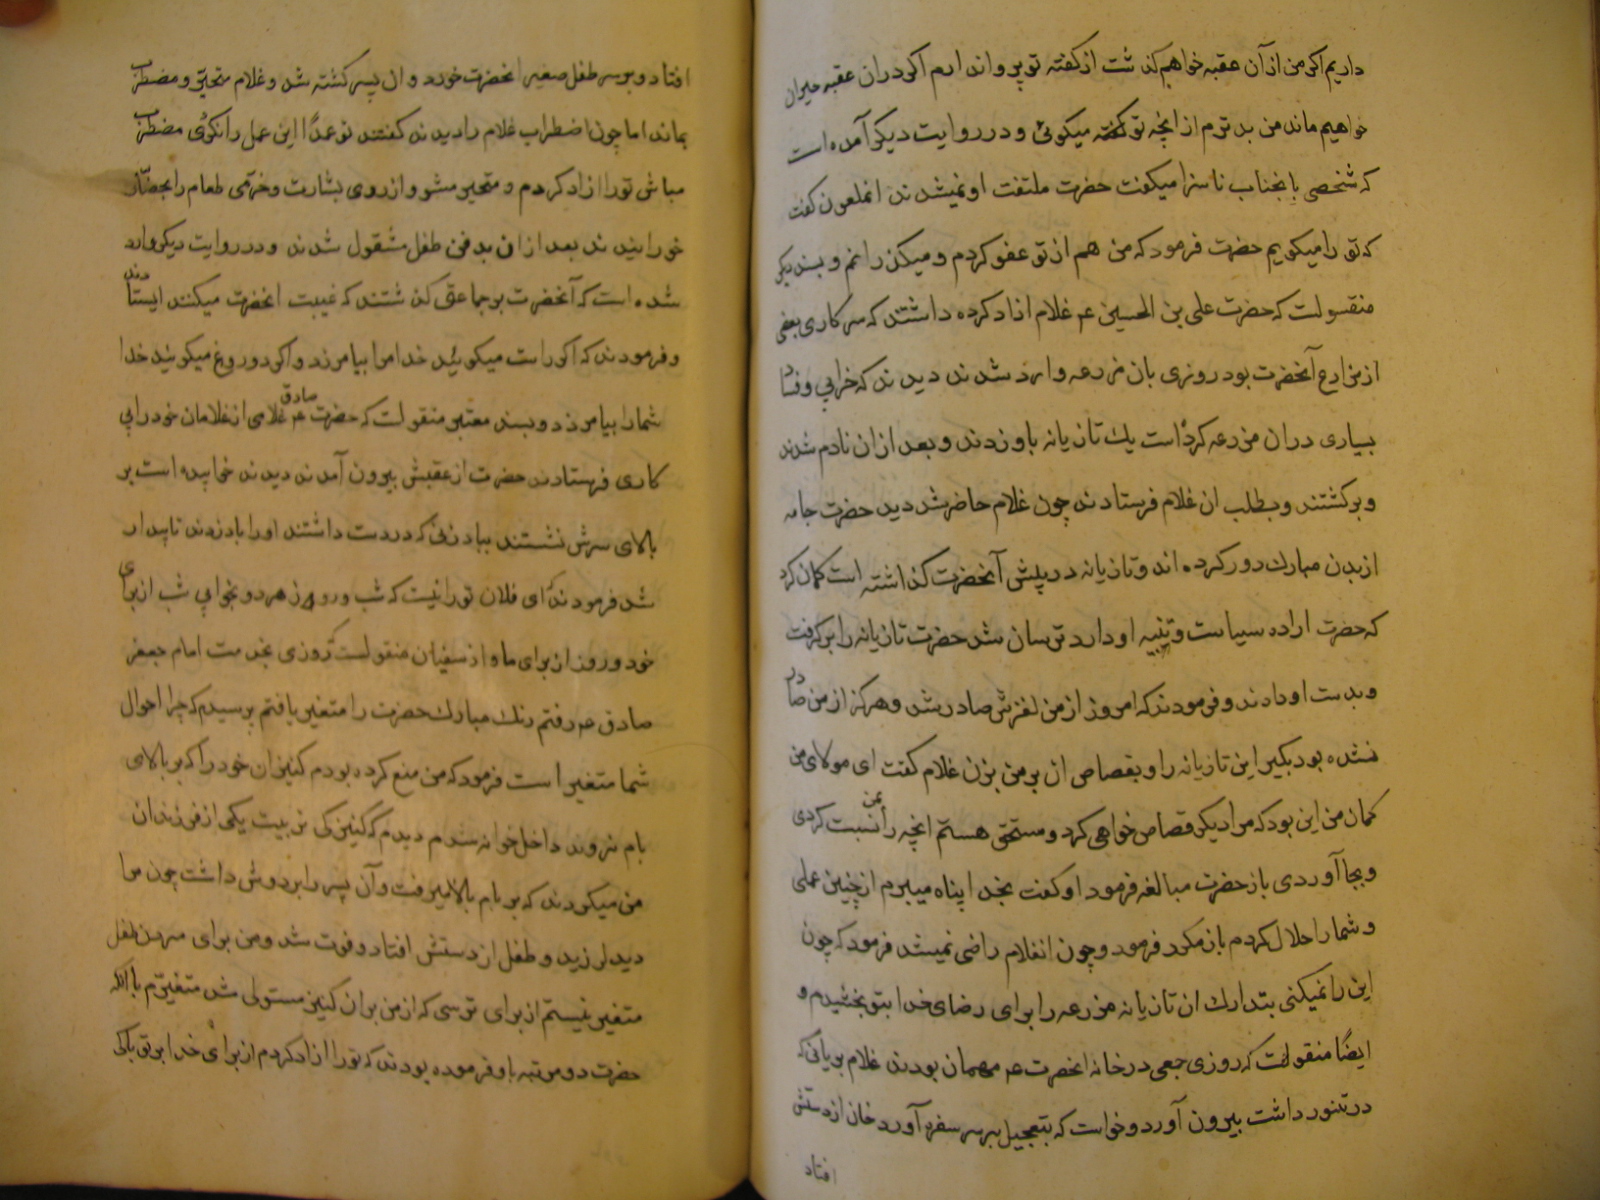 داریم اکر من از آن عقبه خواهم کذشت از کفته تو پروا ندارم اکر دران عقبه حیران
خواهیم ماند من بدترم از انچه تو کفته میکوئی و در روایت دیکر آمده است
که شخصی بانجناب ناسزا میکفت حضرت ملتفت او نمیشدند انملعون کفت
که تو را میکویم حضرت فرمود که من هم از تو عفو کردم و میکذرانم و بسند دیکر
منقولست که حضرت علی بن الحسین ع غلام ازاد کرده داشتند که سرکاری بعضی
از مزارع آنحضرت بود روزی بان مزرعه وارد شدند دیدند که خرابی و فساد
بسیاری دران مزرعه کرده است یک تازیانه باو زدند و بعد ازان نادم شدند
و برکشتند و بطلب ان غلام فرستادند چون غلام حاضر شد دید حضرت جامه
از بدن مبارک دور کرده اند و تازیانه در پیش آنحضرت کذاشته است کمان کرد
که حضرت اراده سیاست و تنبیه او دارد ترسان شد حضرت تازیانه را برکرفت
و بدست او دادند و فرمودند که امروز از من لغزش صادر شد و هرکز از من صادر
نشده بود بکیر این تازیانه را و بقصاص ان بر من بزن غلام کفت ای مولای من
کمان من این بود که مرا دیکر قصاص خواهی کرد و مستحق هستم انچه را بمن نسبت کردی
و بجا آوردی باز حضرت مبالغه فرمود او کفت بخدا پناه میبرم از چنین عملی
و شما را حلال کردم باز مکرر فرمود و چون انغلام راضی نمیشد فرمود که چون
این را نمیکنی بتدارک ان تازیانه مزرعه را برای رضای خدا بتو بخشیدم و
ایضًا منقولست که روزی جمعی در خانه انحضرت ع مهمان بودند غلام بریانی که
در تنور داشت بیرون آورد و خواست که بتعجیل بر سر سفره آورد خان از دستش
افتاد
افتاد و بر سر طفل صغیر انحضرت خورد و ان پسر کشته شد و غلام متحیر و مضطرب
بماند اما چون اضطراب غلام را دیدند کفتند تو عمدًا این عمل را نکردی مضطرب
مباش تو را ازاد کردم و متحیر مشو و از روی بشارت و خرمی طعام را بحضار
خورانیدند بعد ازان بدفن طفل مشقول شدند و در روایت دیکر وارد
شده است که آنحضرت بر جماعتی کذشتند که غیبت انحضرت میکنند ایستادند
و فرمودند که اکر راست میکوئید خدا مرا بیامرزد و اکر دوروغ میکوئید خدا
شما را بیامرزد و بسند معتبر منقولست که حضرت صادق ع غلامی از غلامان خود را پی
کاری فرستادند حضرت از عقبش بیرون آمدند دیدند خوابیده است بر
بالای سرش نشستند ببادزنی که در دست داشتند او را باد زدند تا بیدار
شد فرمودند که ای فلان تو را نیست که شب و روز هر دو بخوابی شب از برای
خود و روز از برای ما و از سفیان منقولست که روزی بخدمت امام جعفر
صادق ع رفتم رنک مبارک حضرت را متغیر یافتم پرسیدم که چرا احوال
شما متغیر است فرمود که من منع کرده بودم کنیزان خود را که بر بالای
بام نروند داخل خوانه شدم دیدم که کنیزکی تربیت یکی از فرزندان
من میکردند که بر بام بالا میرفت و آن پسر را بر دوش داشت چون مرا
دید لرزید و طفل از دستش افتاد و فوت شد و من برای مردن طفل
متغیر نیستم از برای ترسی که از من بران کنیز مستولی شد متغیرم با آنکه
حضرت دو مرتبه باو فرموده بودند که تو را ازاد کردم از برای خدا بر تو باکی